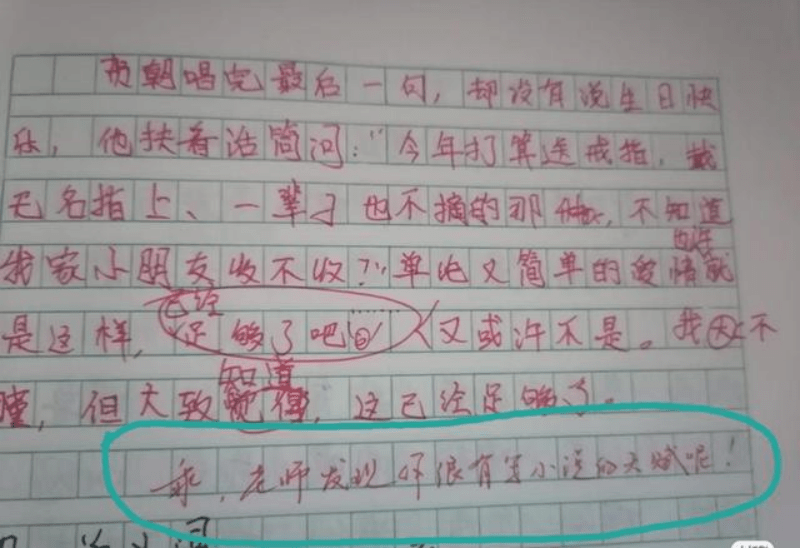 朝唱完最后一句，却没有说生日快
乐，他扶着话筒问：“今年打算送戒指，戴
无名指上、一辈子也不摘的那种，不知道
我家小朋友收不收？”单论又简单的爱情就
是这样，已经足够了吧 又或许不是。我 不
懂，但大致知道，这已经足够了。
乖，老师发现你很有写小说的天赋呢！